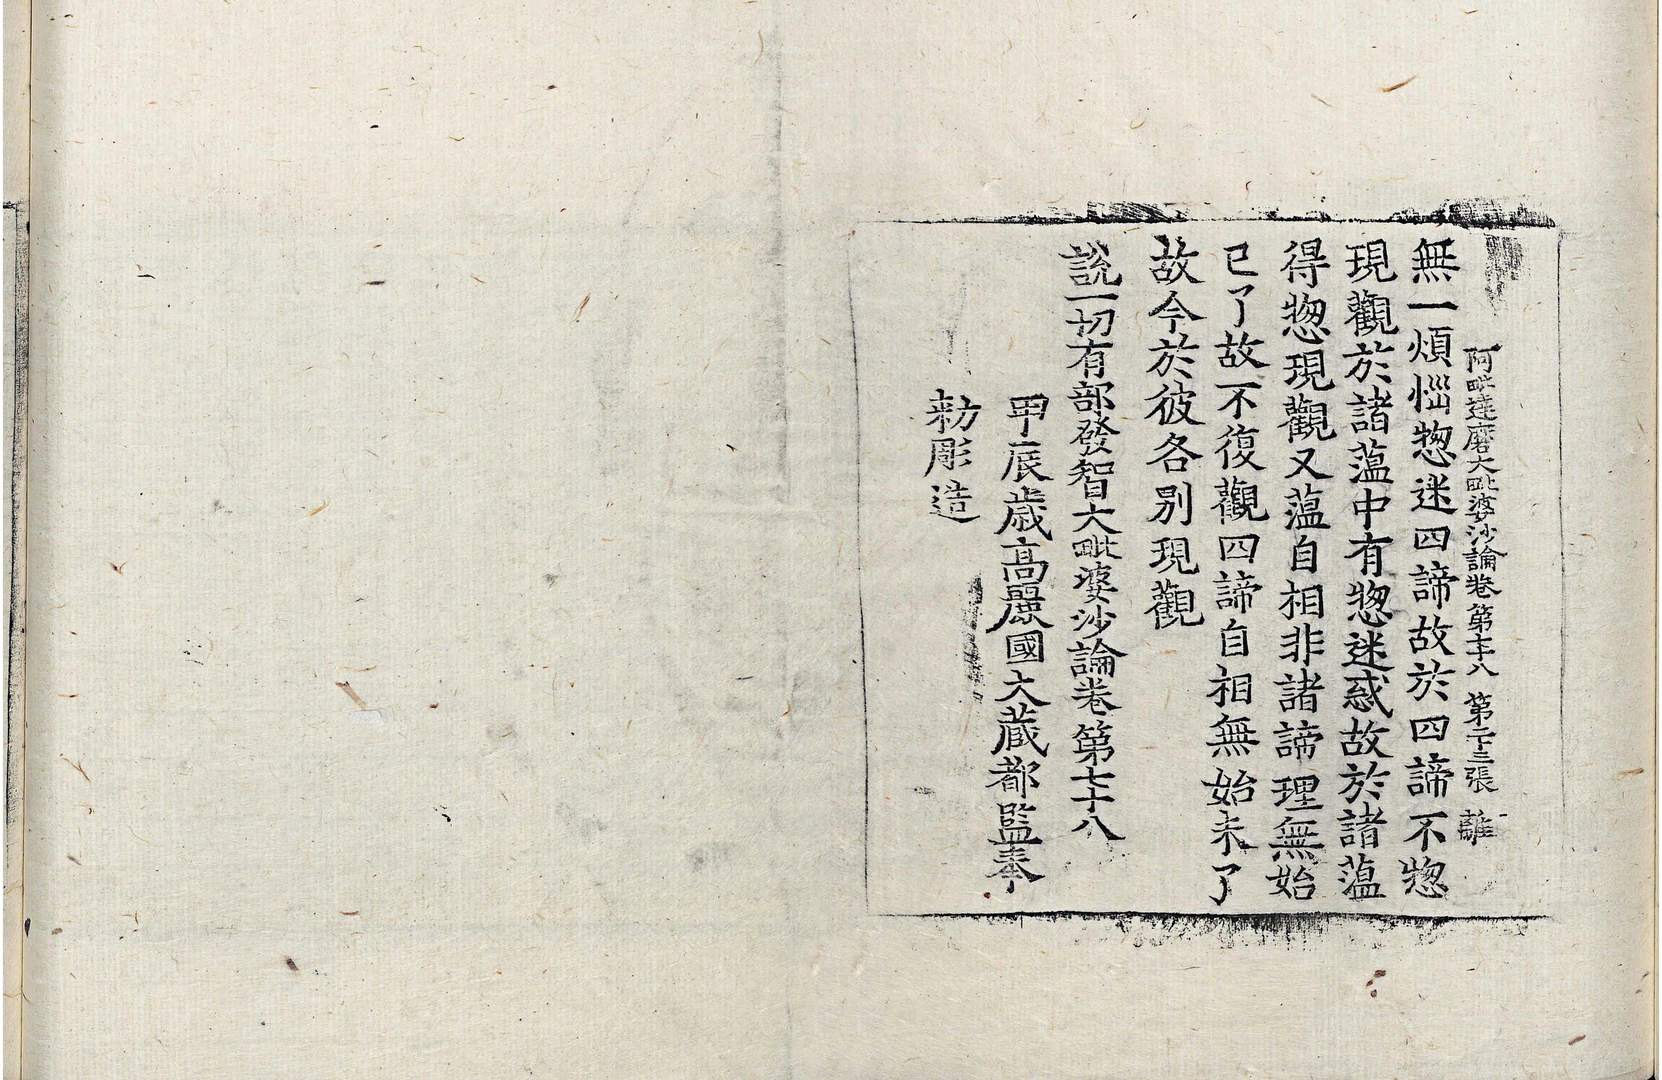 阿毗達磨大毗婆沙論卷第七十八 第二十三張 離
無一煩惱惣迷四諦故於四諦不惣
現觀於諸蕰中有惣迷惑故於諸蕰
得惣現觀又蕰自相非諸諦理無始
已了故不復觀四諦自相無始未了
故今於彼各別現觀
說一切有部發智大毗婆沙論卷第七十八
甲辰歲高麗國大藏都監奉
勑彫造